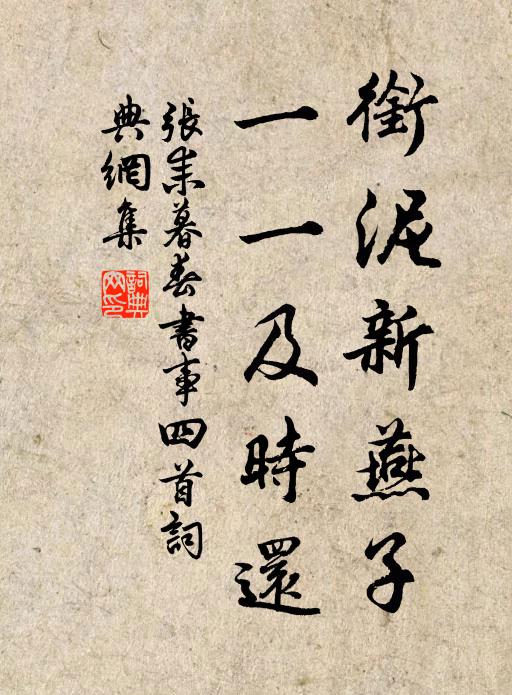 銜泥新燕子
一一及時還
張耒暮春書事四首詞
典網集
詞典
网印